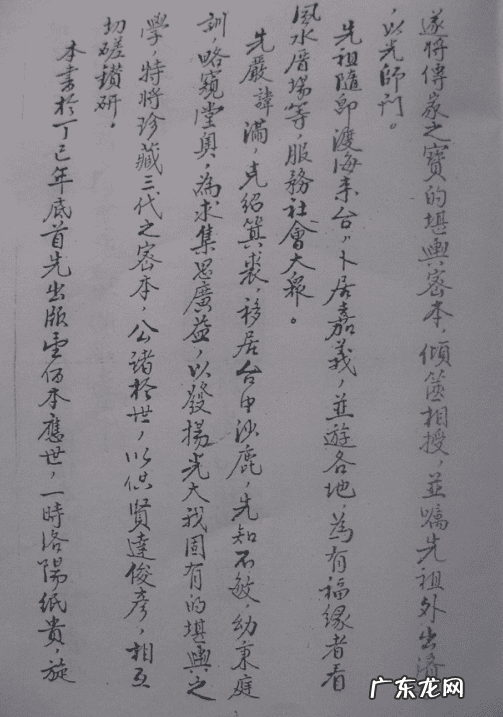 遂將傳家之寶的堪輿密本,傾筐相授,並囑先祖外出濟
,以光師門。
先祖隨即渡海來台,卜居嘉義,並遊各地,為有福緣者看
風水厝場等,服務社會大眾。
先嚴諱滿 克紹箕裘,移居台中沙鹿,先知不敏,幼秉庭
訓,略窺堂奧,為求集思廣益,以發揚光大我固有的堪輿之
學,特將珍藏三代之密本,公諸於世,以供賢達俊彥,相互
切磋鑽研。
本書於丁巳年底,首先出版壹佰本應世,一時洛陽紙貴,旋
广东龙网